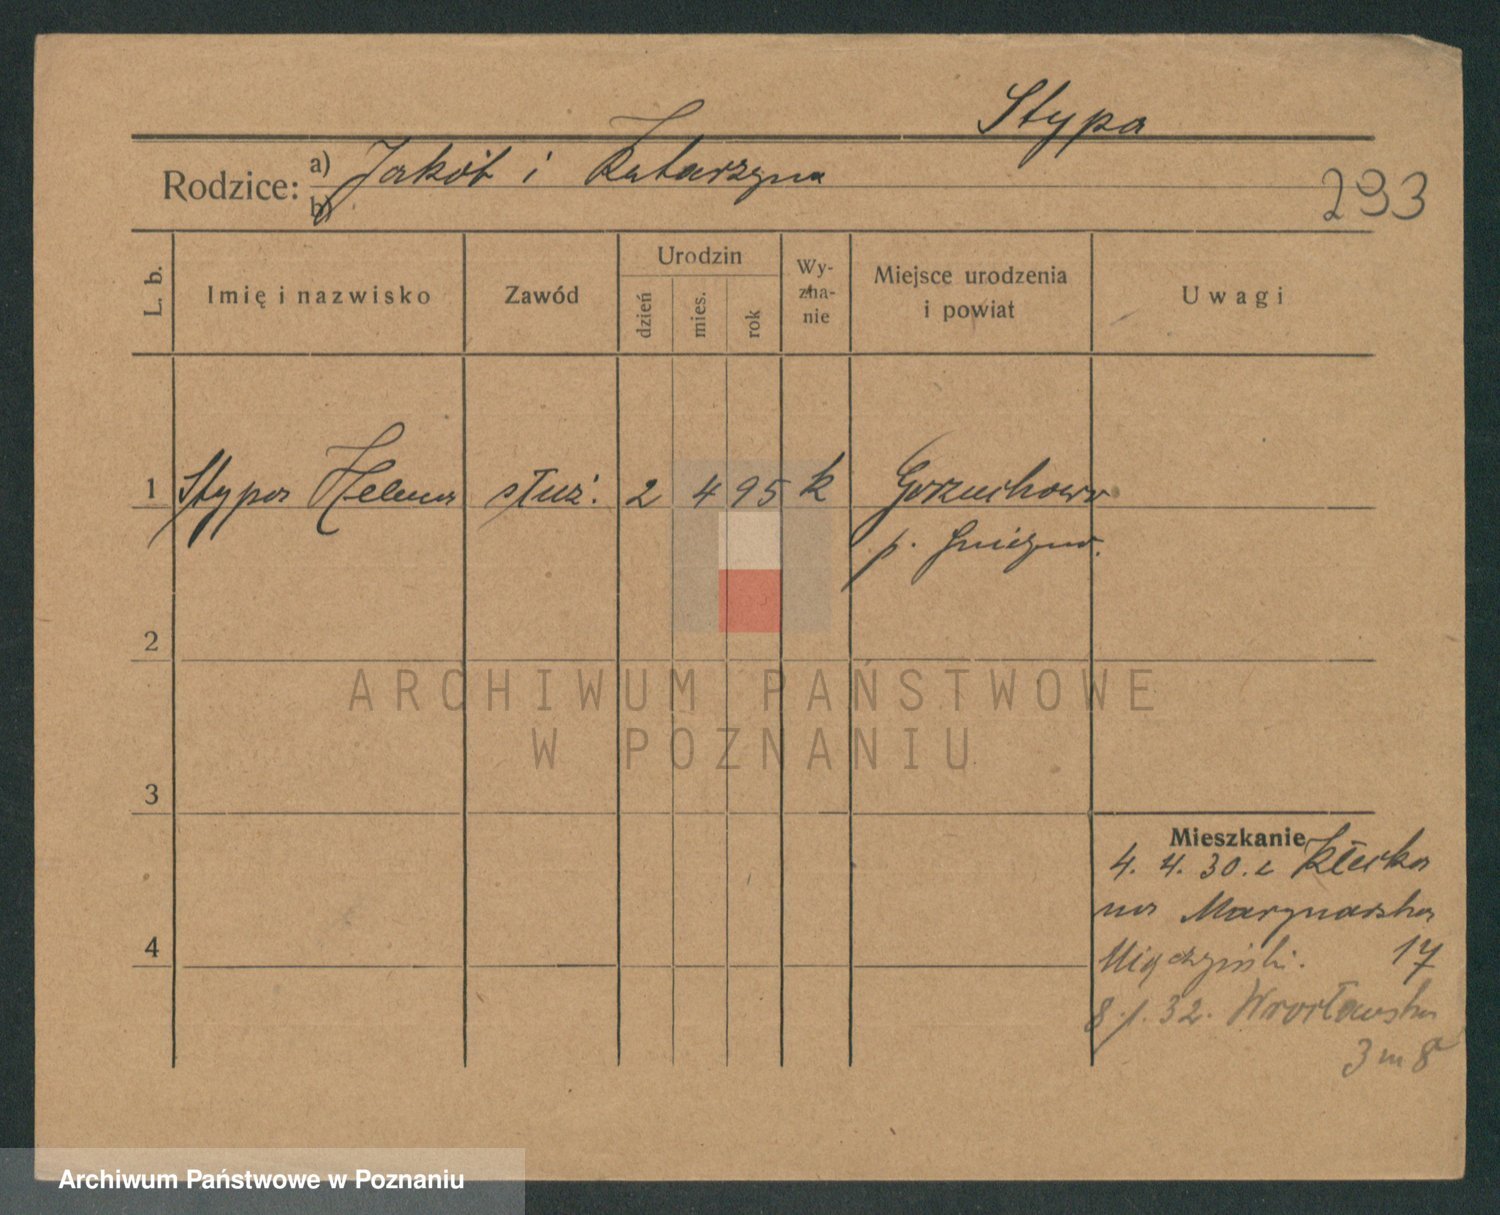 Stypa
Rodzice: a) Jakób i Katarzyna
b)
293
L. b. Imię i nazwisko Zawód Urodzin dzień mies. rok Wy-zna-nie Miejsce urodzenia i powiat Uwagi
1 Stypa Helena służ. 2 4 95 k Gorzuchowo
p. Gniezno.
2
ARCHIWUM PAŃSTWOWE
W POZNANIU
3
Mieszkanie
4. 4. 30. z Kłecka
na Marynarska
4
Miączyński. 17
8.1.32. Wrocławska
3 m 8
Archiwum Państwowe w Poznaniu